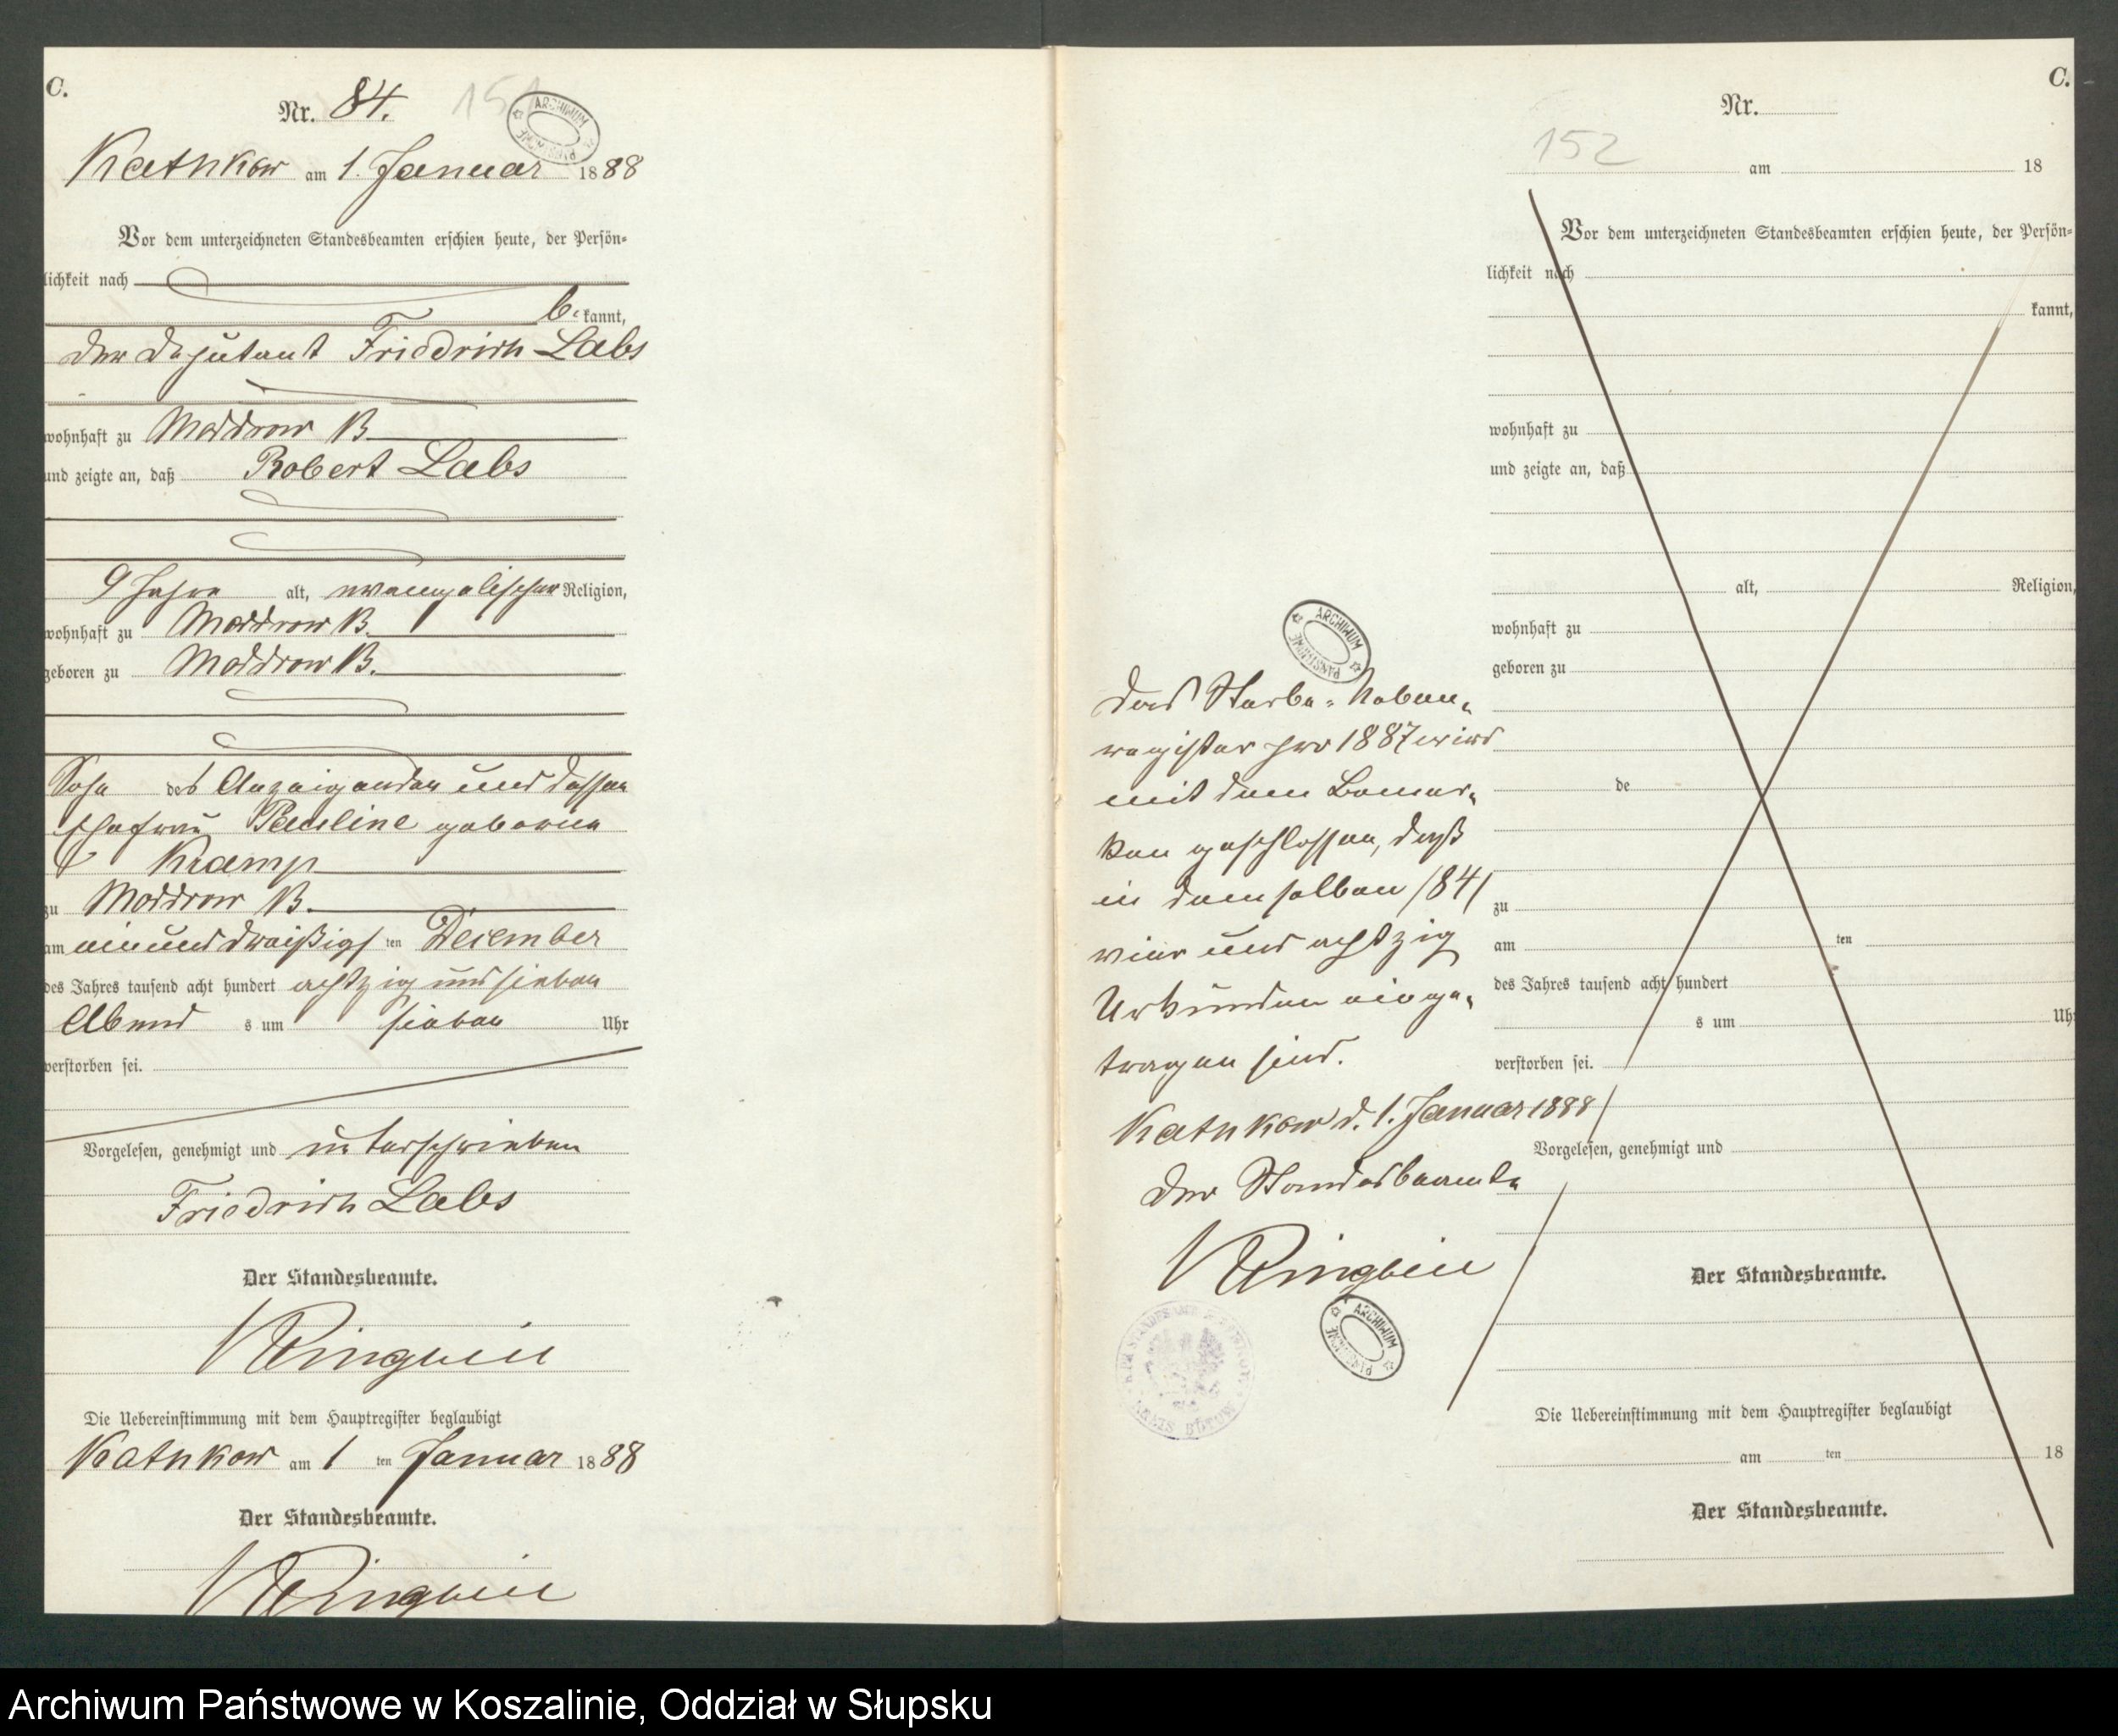 C.
Nr. 84.
151
ARCHIWUM PAŃSTWOWE
Kathkow am 1. Januar 1888
Vor dem unterzeichneten Standesbeamten erschien heute, der Persön-
lichkeit nach
be kannt,
der Deputant Friedrich Labs
wohnhaft zu Moddrow B.
und zeigte an, daß Robert Labs
9 Jahre alt, evangelischer Religion,
wohnhaft zu Moddrow B.
geboren zu Moddrow B.
Sohn des Anzeigenden und dessen
Ehefrau Pauline geborene
Kramp
zu Moddrow B.
am einunddreißigs ten December
des Jahres tausend acht hundert achtzig und sieben
Abend s um sieben Uhr
verstorben sei.
Vorgelesen, genehmigt und unterschrieben
Friedrich Labs
Der Standesbeamte.
Die Uebereinstimmung mit dem Hauptregister beglaubigt
Kathkow am 1 ten Januar 1888
Der Standesbeamte.
Das Sterbe-Neben-
register pro 1887 wird
mit dem Bemer-
ken geschlossen, daß
in demselben /84/
vier und achtzig
Urkunden einge-
tragen sind.
Kathkow d. 1. Januar 1888
Der Standesbeamte
ARCHIWUM PAŃSTWOWE
ARCHIWUM PAŃSTWOWE
C.
Nr.
152
am 18
Vor dem unterzeichneten Standesbeamten erschien heute, der Persön-
lichkeit nach
kannt,
wohnhaft zu
und zeigte an, daß
alt, Religion,
wohnhaft zu
geboren zu
de
zu
am ten
des Jahres tausend acht hundert
s um Uhr
verstorben sei.
Vorgelesen, genehmigt und
Der Standesbeamte.
Die Uebereinstimmung mit dem Hauptregister beglaubigt
am ten 18
Der Standesbeamte.
Archiwum Państwowe w Koszalinie, Oddział w Słupsku